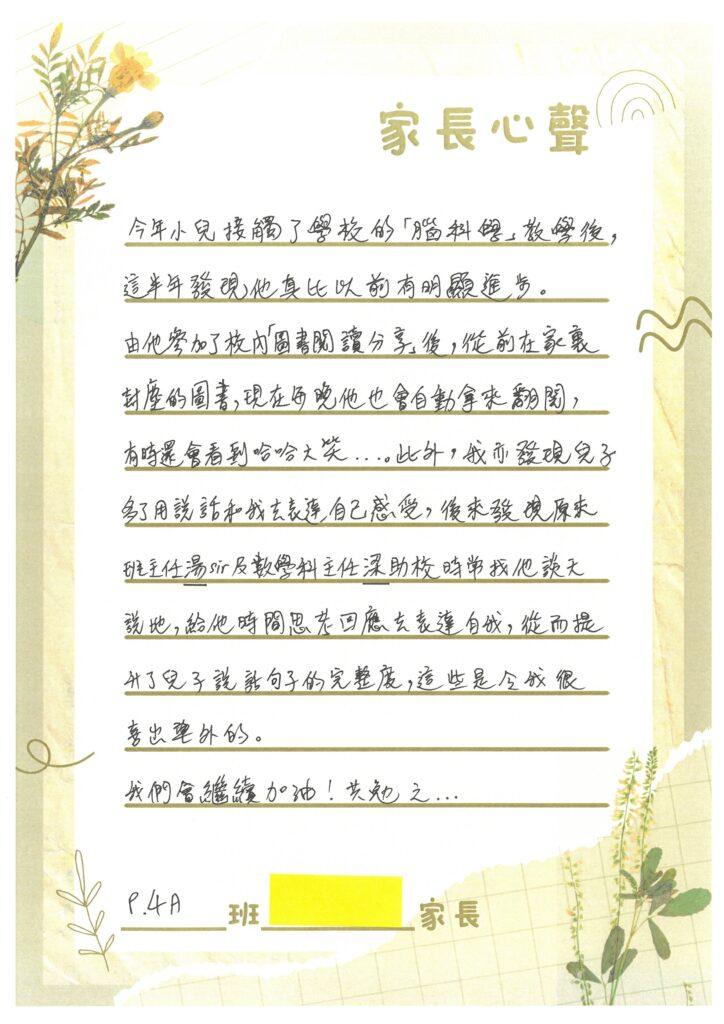 家長心聲
今年小兒接觸了學校的「腦科學」教學後，
這半年發現他真比以前有明顯進步。
由他參加了校內「圖書閱讀分享」後，從前在家裏
封塵的圖書，現在每晚他也會自動拿來翻閱，
有時還會看到哈哈大笑....。此外，我亦發現兒子
多了用說話和我去表達自己感受，後來發現原來
班主任湯sir及數學科主任梁助校時常找他談天
說地，給他時間思考回應去表達自我，從而提
升了兒子說話句子的完整度，這些是令我很
喜出望外的。
我們會繼續加油！共勉之...
P.4A 班 家長